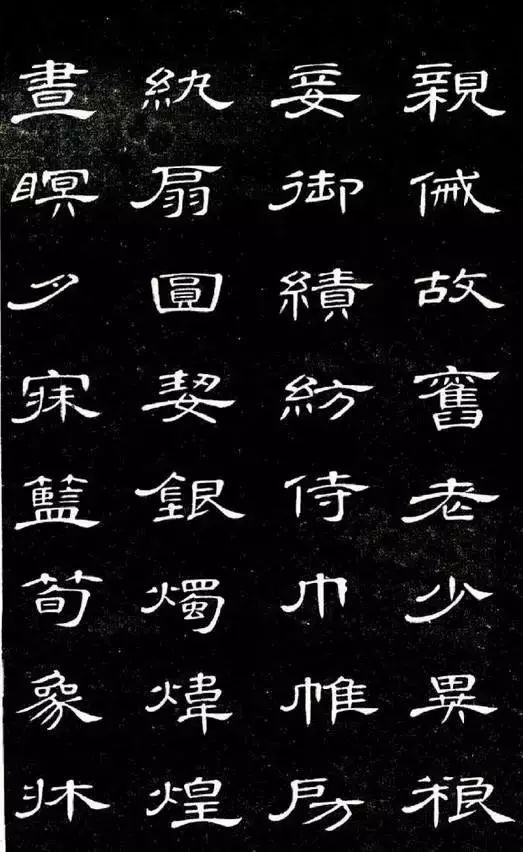 親戚故舊老少異粮
妾御績紡侍巾帷房
紈扇圓絜銀燭煒煌
晝瞑夕寐籃筍象牀